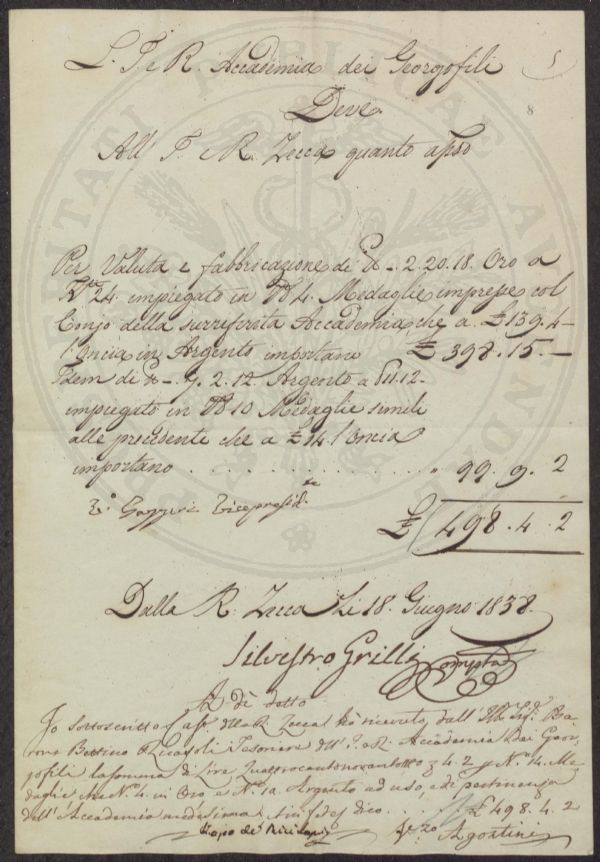 L'I. e R. Accademia dei Georgofili
Deve
All' I. e R. Zecca quanto apso
8
Per Valuta e fabbricazione di - 2.20.18. Oro a
24 impiegato in 4. Medaglie impresse col
Conjo della surriferita Accademia, che a £ 139.4-
l'oncia in Argento importano £ 398.15.-
Idem di - 7.2.12. Argento a 11.12-
impiegato in 10 Medaglie simili
alle precedente che a £ 14. l'oncia
importano . . . . . . . . . . . . . " 99.9.2
V. Gazzeri Vicepresid.te
£ 498.4.2
Dalla R. Zecca Li 18. Giugno 1838.
Silvestro Grilli Compta
A dì detto
Io sottoscritto Cass. della R. Zecca hò ricevuto dall' Ill. Sig. Ba-
rone Bettino Ricasoli Tesoriere dell' I. e R. Accademia dei Geor-
gofili la somma di Lire Quattrocentonovantotto 4.2 p N.° 14. Me-
daglie che N.° 4. in Oro e N.° 10. Argento ad uso, e di pertinenza
dell' Accademia medesima dico £ 498.4.2
Agostini